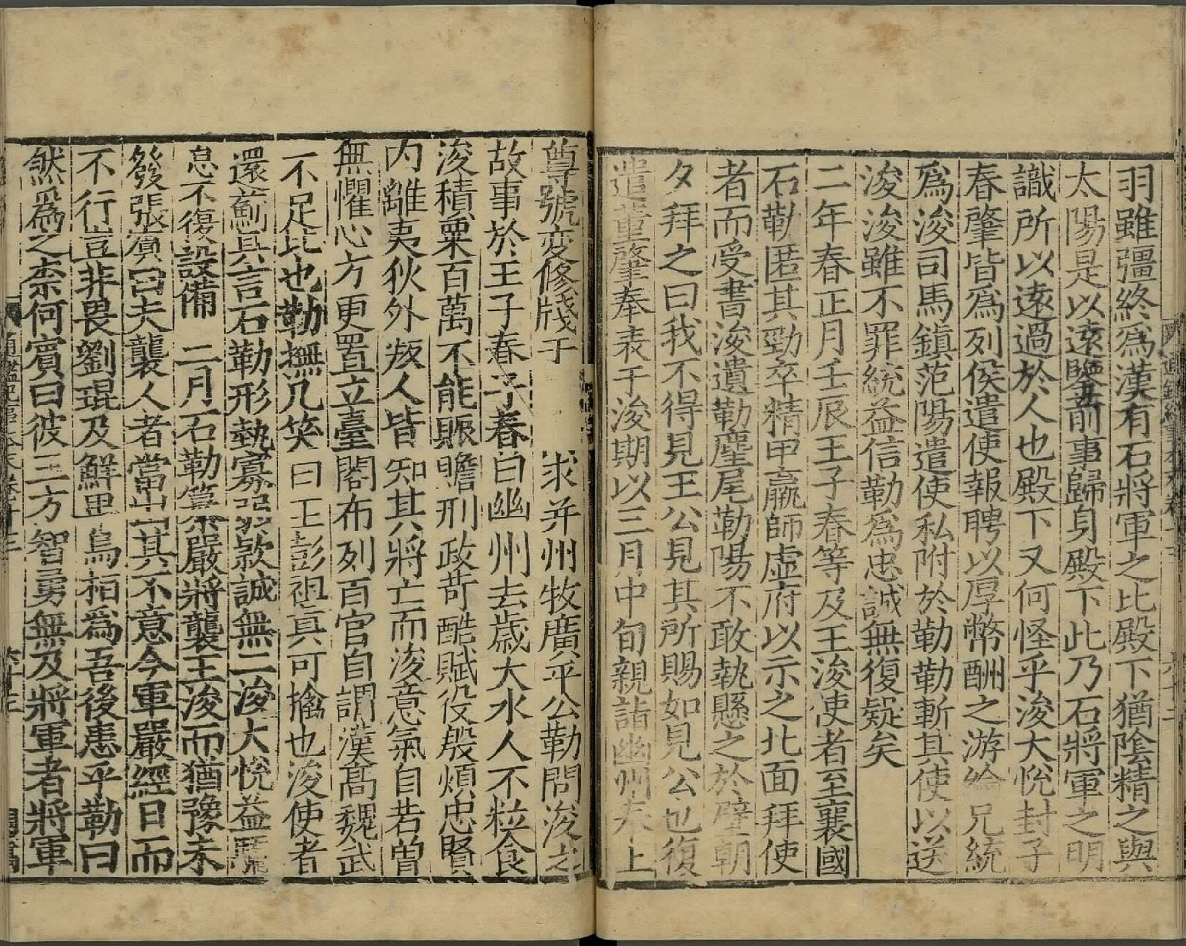 羽雖彊終爲漢有石將軍之比殿下猶陰精之與
太陽是以遠鑒前事歸身殿下此乃石將軍之明
識所以遠過於人也殿下又何怪乎浚大恱封子
春肇皆爲列侯遣使報聘以厚幣酬之游綸兄統
爲浚司馬鎮范陽遣使私附於勒勒斬其使以送
浚浚雖不罪統益信勒爲忠誠無復疑矣
二年春正月壬辰王子春等及王浚使者至襄國
石勒匿其勁卒精甲羸師虛府以示之北面拜使
者而受書浚遺勒麈尾勒陽不敢執懸之於壁朝
夕拜之曰我不得見王公見其所賜如見公也復
遣董肇奉表于浚期以三月中旬親詣幽州奉上
尊號亦修牋于 求并州牧廣平公勒問浚之
故事於王子春子春曰幽州去歲大水人不粒食
浚積粟百萬不能賑贍刑政苛酷賦役殷煩忠賢
内離夷狄外叛人皆知其將亡而浚意氣自若曽
無懼心方更置立臺閣布列百官自謂漢高魏武
不足比也勒撫几笑曰王彭祖真可擒也浚使者
還薊具言石勒形埶寡弱欵誠無二浚大恱益驕
怠不復設備 二月石勒纂嚴將襲王浚而猶豫未
發張賔曰夫襲人者當出其不意今軍嚴經日而
不行豈非畏劉琨及鮮卑烏桓爲吾後患乎勒曰
然爲之柰何賔曰彼三方智勇無及將軍者將軍